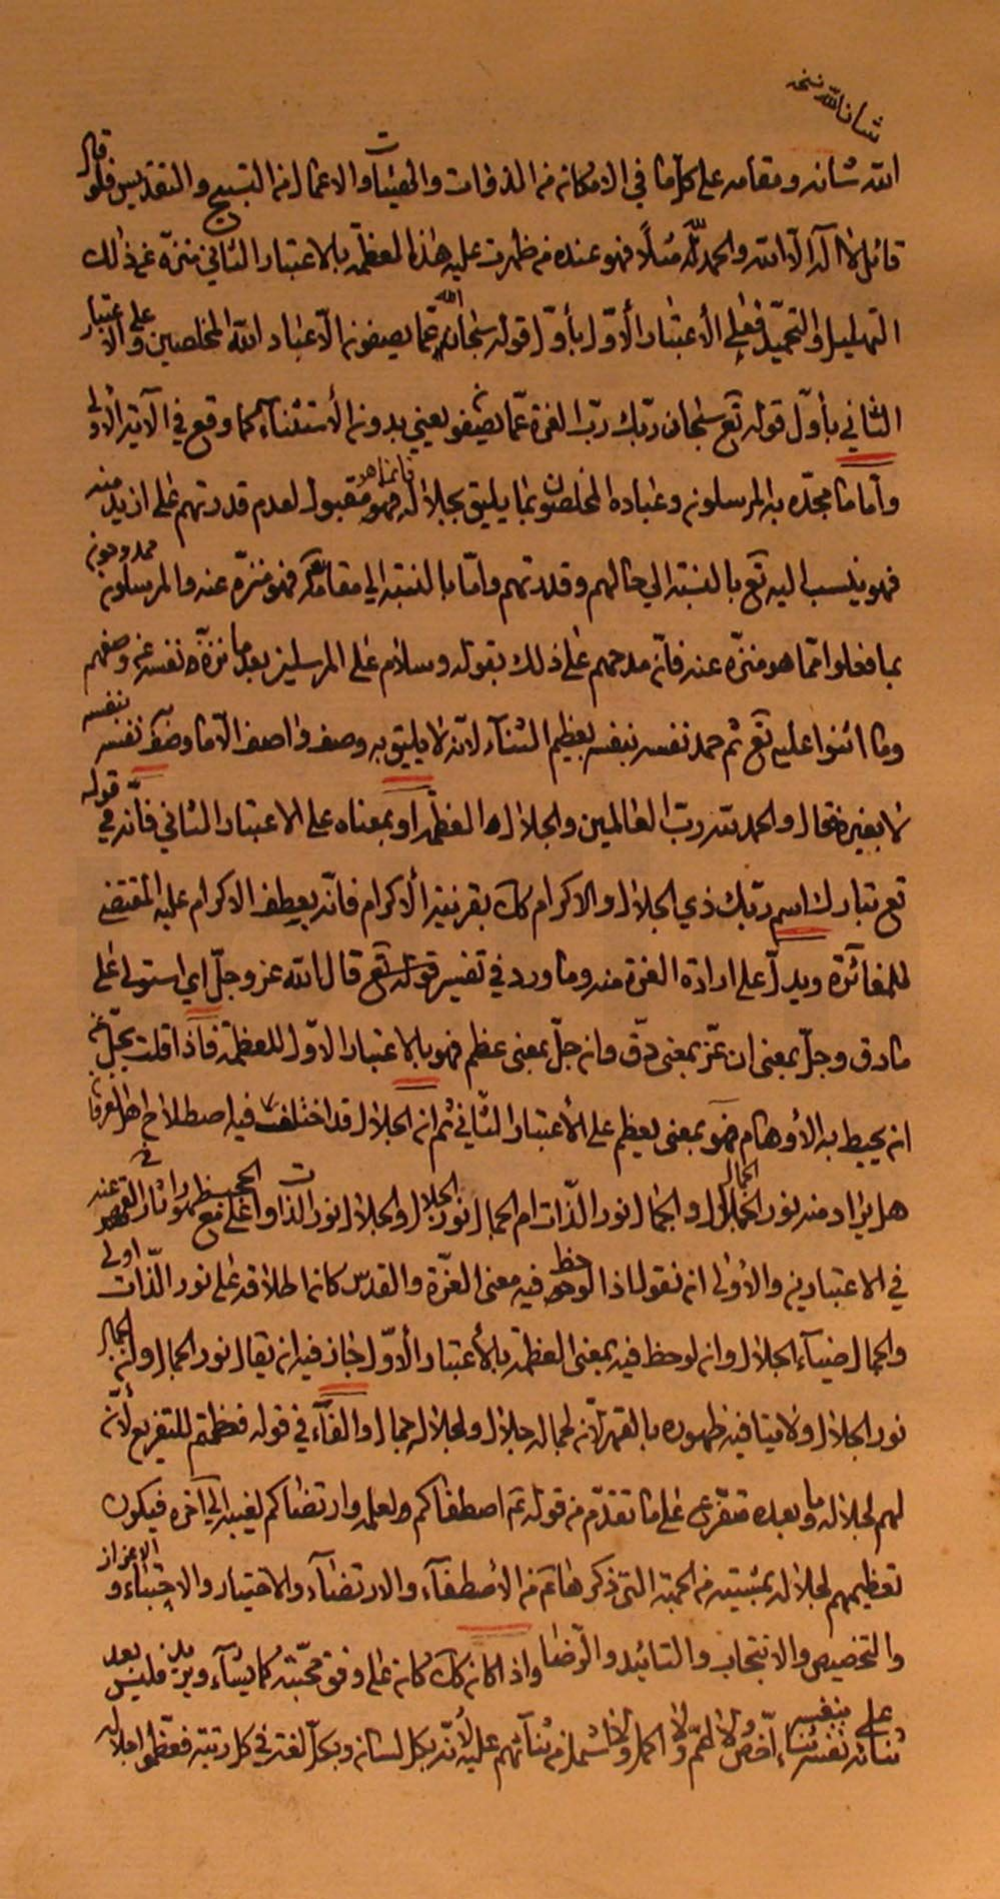 شأن الله نسخه
الله شانه ومقامه على كل ما في الامكان من الذوات والهيئات والاعمال من التسبيح والتقديس فلو قال
قائل لا اله الا الله والحمد لله مثلاً فهو عنده من ظهرت عليه هذا العظمة بالاعتبار الثاني منزه عن ذلك
التهليل والتحميد فعلى الأعتبار الأول بأول قوله سبحان الله عما يصفون الا عباد الله المخلصين وعلى الاعتبار
الثاني بأول قوله تع سبحان ربك رب العزة عما يصفون يعني بدون الأستثناء كما وقع في الآية الأولى
واما ما مجده به المرسلون وعباده المخلصون بما يليق بجلاله فانما هو مقبول لعدم قدرتهم على ازيد منه
فهو ينسب اليه تع بالنسبة الى حالهم وقدرتهم واما بالنسبة الى مقامه فهو منزه عنه والمرسلون ممدوحون
بما فعلوا مما هو منزه عنه فانه مدحهم على ذلك بقوله وسلام على المرسلين بعد ما نزه نفسه عن وصفهم
وما اثنوا عليه تع ثم حمد نفسه بنفسه بعظيم الثناء لانه لا يليق به وصف واصف الا ما وصف به نفسه بنفسه
لا بغيره فقال والحمد لله رب العالمين والجلال هو العظمة او بمعناه على الاعتبار الثاني فانه في قوله
تع تبارك اسم ربك ذي الجلال والاكرام كك بقرينة الاكرام فانه يعطف الاكرام عليه المقتضي
للمغائرة ويدل على ارادة العزة منه وما ورد في تفسير قوله تع قال الله عز وجل اي استولى على
ما دق وجل بمعنى ان عز بمعنى دق وان جل بمعنى عظم فهو بالاعتبار الاول للعظمة فاذا قلت يجل عن
ان يحيط به الأوهام فهو بمعنى يعظم على الأعتبار الثاني ثم ان الجلال قد اختلف فيه اصطلاح اهل العرفان
هل يراد منه نور الجمال والجمال نور الذات ام الجمال نور الجلال والجلال نور الذات وا على مع ظهور اثار القهر عنه
في الاعتبارين والأولى ان نقول اذا لوحظ فيه معنى العزة والقدس كان اطلاقه على نور الذات اولى
والجمال ضياء الجلال وان لوحظ فيه بمعنى العظمة بالأعتبار الأول جاز فيه ان يقال نور الجمال وان الجمال
نور الجلال ولا ينافيه ظهوره بالقهر لأن لجماله جلال ولجلاله جمال والفاء في قوله فعظمتم للتفريع لأنه
لهم لجلاله وما بعده متفرع على ما تقدم من قوله ع اصطفاكم بعلمه وارتضاكم لغيبه الى آخره فيكون
تعظيمهم لجلاله بمشيته من المحبة التي ذكر هاع من الأصطفاء والارتضاء والاختيار والاجتباء والاعزاز
والتخصيص والانتجاب والتائيد والرضا واذا كان كك كان على وفق محبته كما يشاء ويريد فليس بعد
ثنائه على نفسه بنفسه ثناء اخص ولا اعم ولا اكمل ولا اشمل من ثنائهم عليه لأنه بكل لسان وبكل لغة في كل رتبة فعظموا جلاله